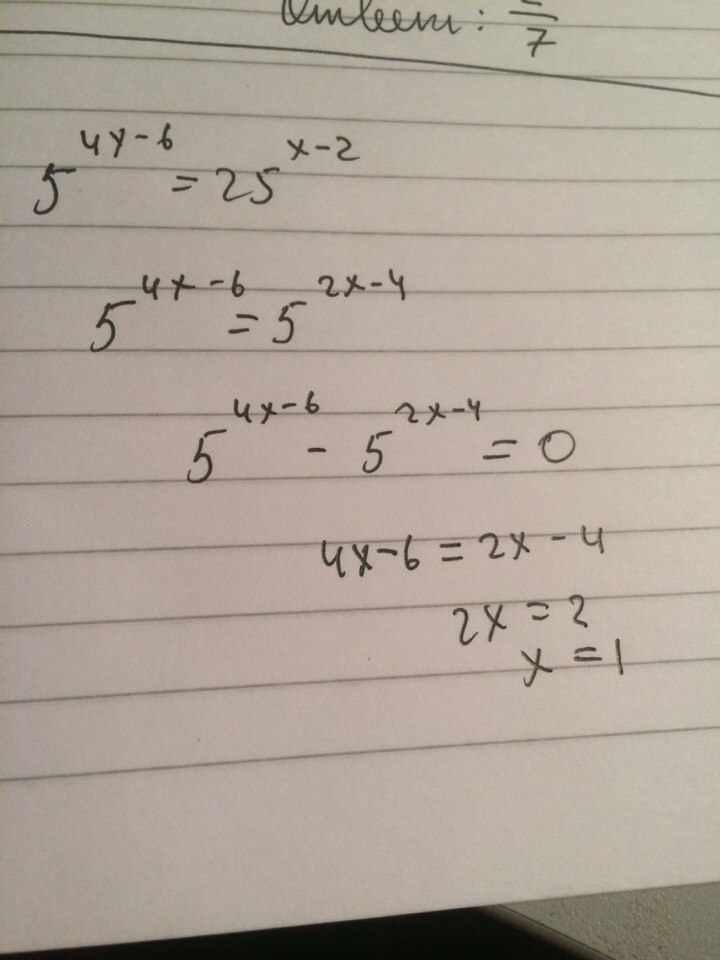 Ответ: /7
5^{4y-6} = 25^{x-2}
5^{4x-6} = 5^{2x-4}
5^{4x-6} - 5^{2x-4} = 0
4x-6 = 2x-4
2x = 2
x = 1